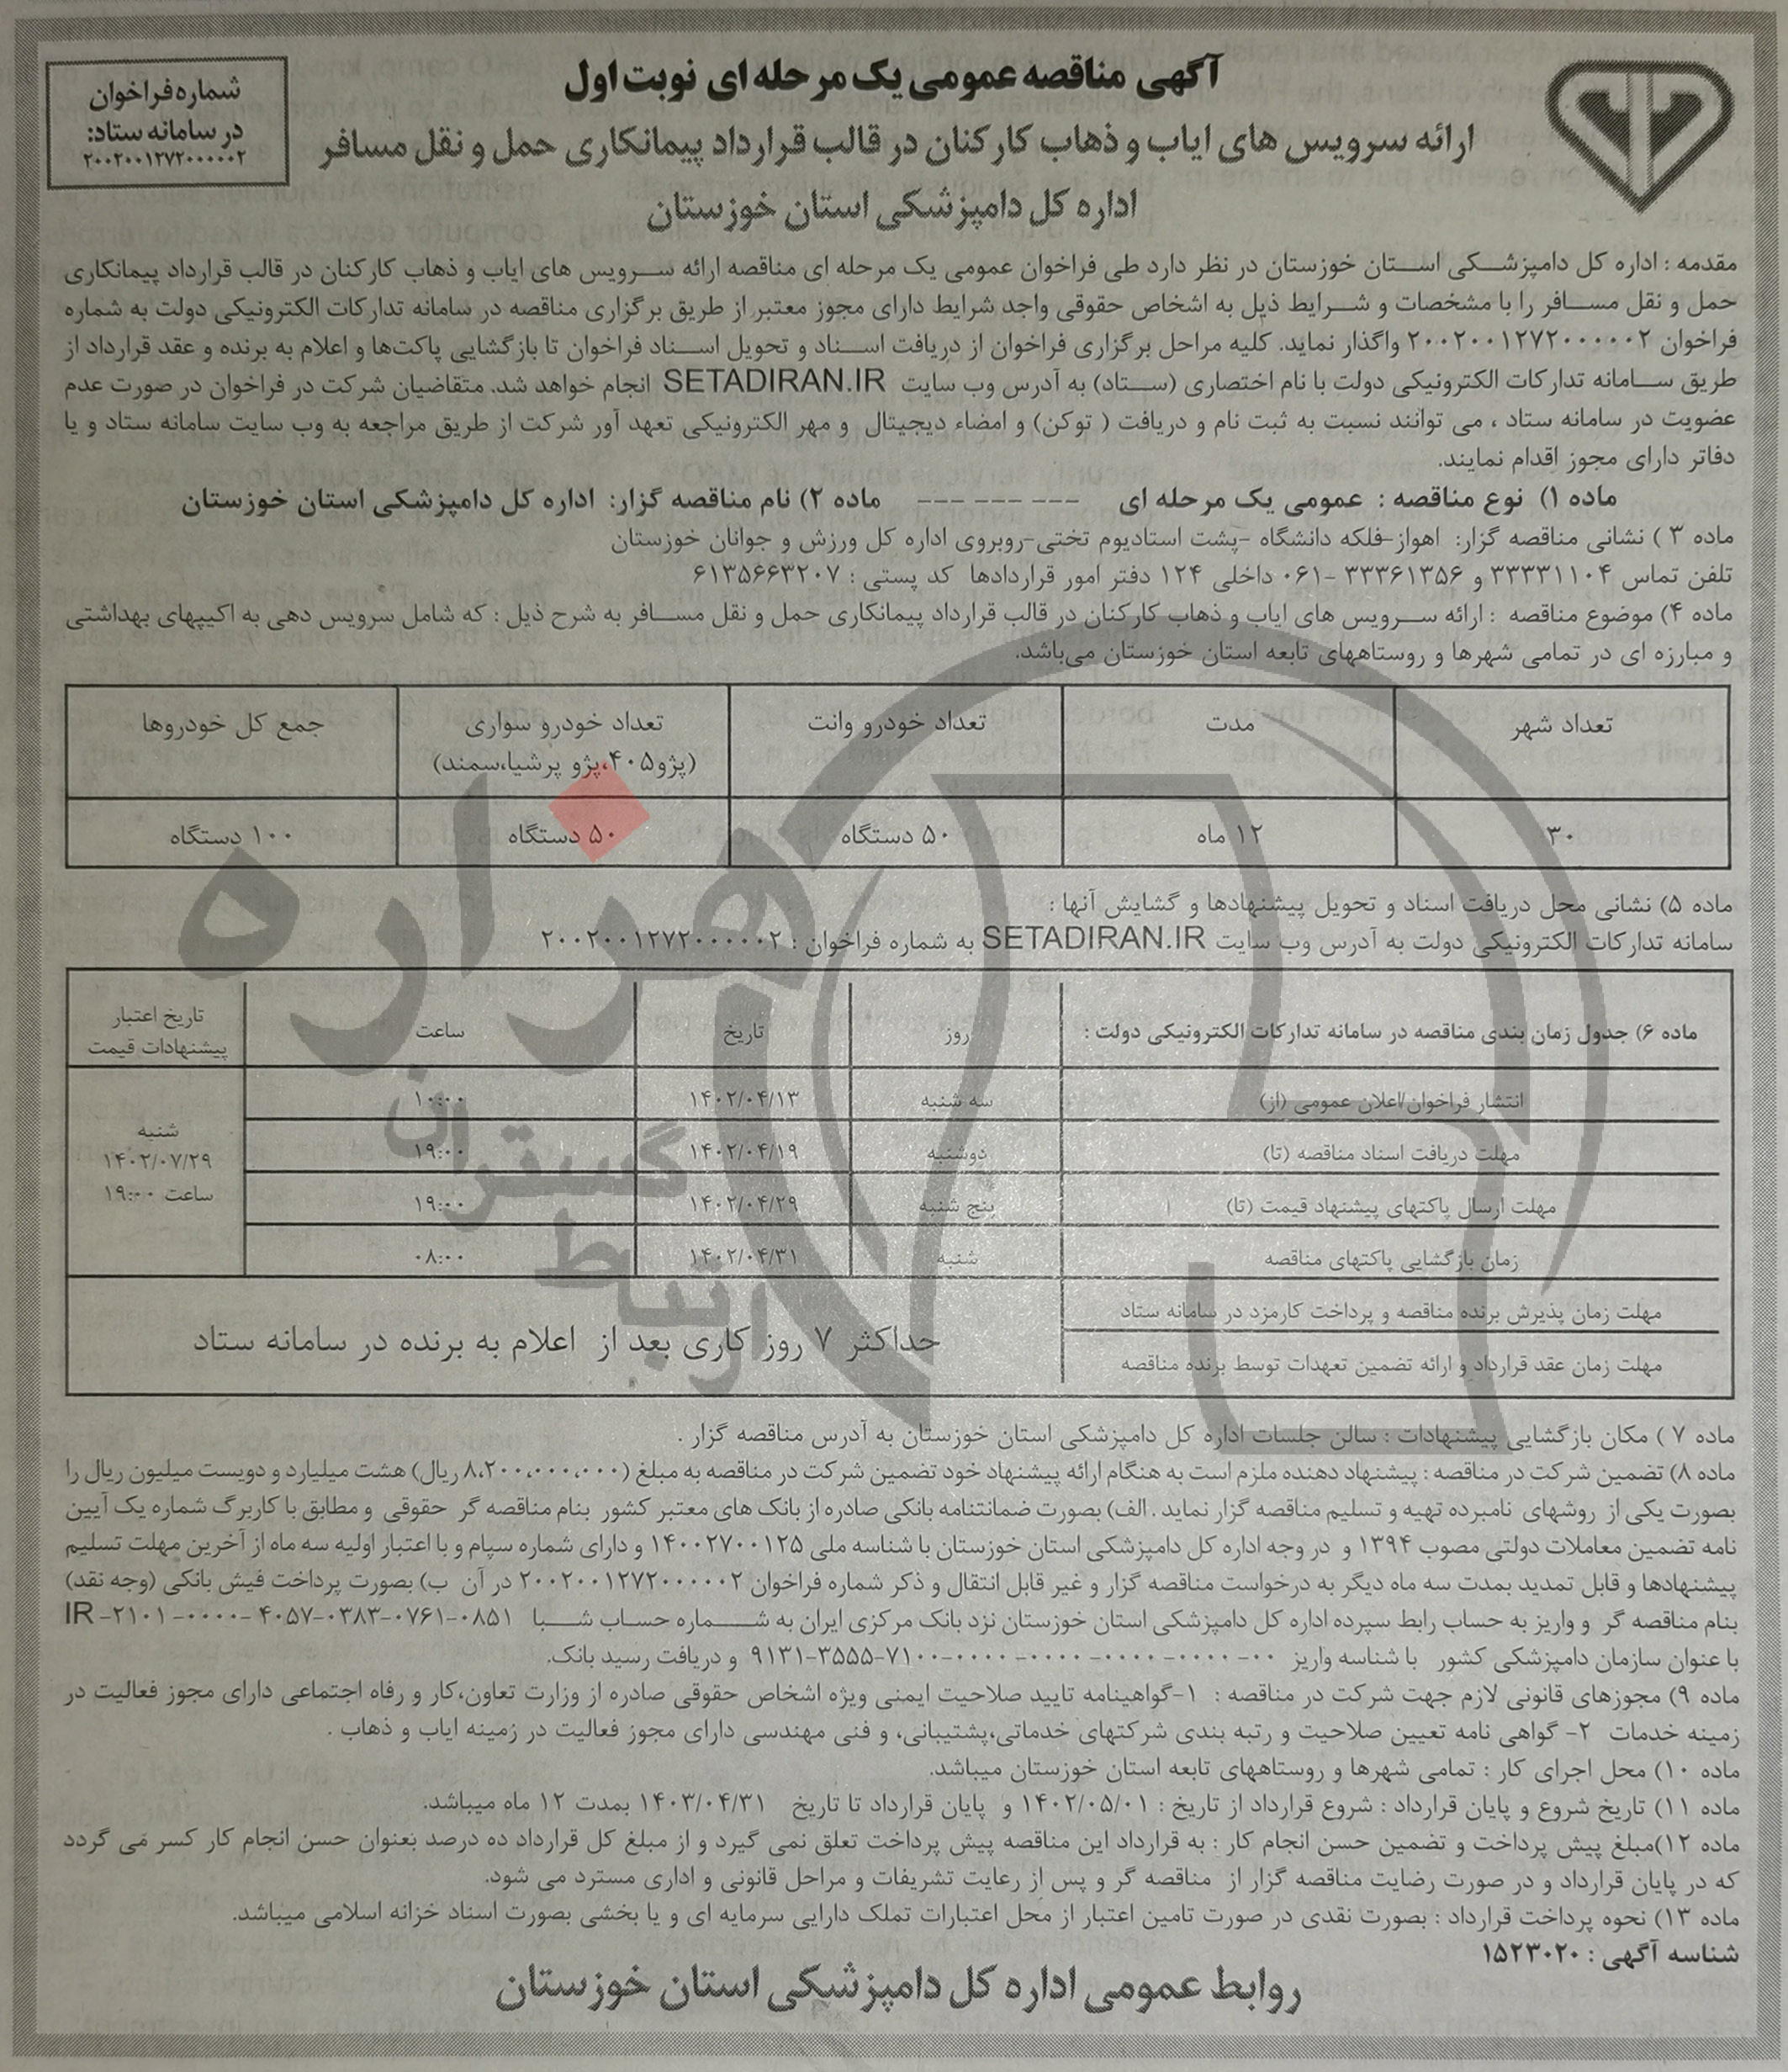 آگهی مناقصه عمومی یک مرحله ای نوبت اول
ارائه سرویس های ایاب و ذهاب کارکنان در قالب قرارداد پیمانکاری حمل و نقل مسافر
اداره کل دامپزشکی استان خوزستان
شماره فراخوان
در سامانه ستاد:
۲۰۰۲۰۰۱۲۷۲۰۰۰۰۰۲
مقدمه : اداره کل دامپزشکی استان خوزستان در نظر دارد طی فراخوان عمومی یک مرحله ای مناقصه ارائه سرویس های ایاب و ذهاب کارکنان در قالب قرارداد پیمانکاری
حمل و نقل مسافر را با مشخصات و شرایط ذیل به اشخاص حقوقی واجد شرایط دارای مجوز معتبر از طریق برگزاری مناقصه در سامانه تدارکات الکترونیکی دولت به شماره
فراخوان ۲۰۰۲۰۰۱۲۷۲۰۰۰۰۰۲ واگذار نماید. کلیه مراحل برگزاری فراخوان از دریافت اسناد و تحویل اسناد فراخوان تا بازگشایی پاکت‌ها و اعلام به برنده و عقد قرارداد از
طریق سامانه تدارکات الکترونیکی دولت با نام اختصاری (ستاد) به آدرس وب سایت SETADIRAN.IR انجام خواهد شد. متقاضیان شرکت در فراخوان در صورت عدم
عضویت در سامانه ستاد ، می توانند نسبت به ثبت نام و دریافت ( توکن) و امضاء دیجیتال و مهر الکترونیکی تعهد آور شرکت از طریق مراجعه به وب سایت سامانه ستاد و یا
دفاتر دارای مجوز اقدام نمایند.
ماده ۱) نوع مناقصه : عمومی یک مرحله ای --- --- --- ماده ۲) نام مناقصه گزار: اداره کل دامپزشکی استان خوزستان
ماده ۳ ) نشانی مناقصه گزار: اهواز-فلکه دانشگاه -پشت استادیوم تختی-روبروی اداره کل ورزش و جوانان خوزستان
تلفن تماس ۳۳۳۳۱۱۰۴ و ۳۳۳۶۱۳۵۶ -۰۶۱ داخلی ۱۲۴ دفتر امور قراردادها کد پستی : ۶۱۳۵۶۶۳۲۰۷
ماده ۴) موضوع مناقصه : ارائه سرویس های ایاب و ذهاب کارکنان در قالب قرارداد پیمانکاری حمل و نقل مسافر به شرح ذیل : که شامل سرویس دهی به اکیپهای بهداشتی
و مبارزه ای در تمامی شهرها و روستاههای تابعه استان خوزستان می‌باشد.
تعداد شهر مدت تعداد خودرو وانت تعداد خودرو سواری جمع کل خودروها
(پژو۴۰۵،پژو پرشیا،سمند)
۳۰ ۱۲ ماه ۵۰ دستگاه ۵۰ دستگاه ۱۰۰ دستگاه
ماده ۵) نشانی محل دریافت اسناد و تحویل پیشنهادها و گشایش آنها :
سامانه تدارکات الکترونیکی دولت به آدرس وب سایت SETADIRAN.IR به شماره فراخوان : ۲۰۰۲۰۰۱۲۷۲۰۰۰۰۰۲
ماده ۶) جدول زمان بندی مناقصه در سامانه تدارکات الکترونیکی دولت : روز تاریخ ساعت تاریخ اعتبار
پیشنهادات قیمت
انتشار فراخوان/اعلان عمومی (از) سه شنبه ۱۴۰۲/۰۴/۱۳ ۱۰:۰۰
مهلت دریافت اسناد مناقصه (تا) دوشنبه ۱۴۰۲/۰۴/۱۹ ۱۹:۰۰
مهلت ارسال پاکتهای پیشنهاد قیمت (تا) پنج شنبه ۱۴۰۲/۰۴/۲۹ ۱۹:۰۰
زمان بازگشایی پاکتهای مناقصه شنبه ۱۴۰۲/۰۴/۳۱ ۰۸:۰۰
شنبه
۱۴۰۲/۰۷/۲۹
ساعت ۱۹:۰۰
مهلت زمان پذیرش برنده مناقصه و پرداخت کارمزد در سامانه ستاد
مهلت زمان عقد قرارداد و ارائه تضمین تعهدات توسط برنده مناقصه
حداکثر ۷ روز کاری بعد از اعلام به برنده در سامانه ستاد
ماده ۷ ) مکان بازگشایی پیشنهادات : سالن جلسات اداره کل دامپزشکی استان خوزستان به آدرس مناقصه گزار .
ماده ۸) تضمین شرکت در مناقصه : پیشنهاد دهنده ملزم است به هنگام ارائه پیشنهاد خود تضمین شرکت در مناقصه به مبلغ (۸،۲۰۰،۰۰۰،۰۰۰ ریال) هشت میلیارد و دویست میلیون ریال را
بصورت یکی از روشهای نامبرده تهیه و تسلیم مناقصه گزار نماید . الف) بصورت ضمانتنامه بانکی صادره از بانک های معتبر کشور بنام مناقصه گر حقوقی و مطابق با کاربرگ شماره یک آیین
نامه تضمین معاملات دولتی مصوب ۱۳۹۴ و در وجه اداره کل دامپزشکی استان خوزستان با شناسه ملی ۱۴۰۰۲۷۰۰۱۲۵ و دارای شماره سپام و با اعتبار اولیه سه ماه از آخرین مهلت تسلیم
پیشنهادها و قابل تمدید بمدت سه ماه دیگر به درخواست مناقصه گزار و غیر قابل انتقال و ذکر شماره فراخوان ۲۰۰۲۰۰۱۲۷۲۰۰۰۰۰۲ در آن ب) بصورت پرداخت فیش بانکی (وجه نقد)
بنام مناقصه گر و واریز به حساب رابط سپرده اداره کل دامپزشکی استان خوزستان نزد بانک مرکزی ایران به شماره حساب شبا IR -۲۱۰۱ -۰۰۰۰- ۴۰۵۷-۰۳۸۳-۰۷۶۱-۰۸۵۱
با عنوان سازمان دامپزشکی کشور با شناسه واریز ۰۰- ۰۰۰۰ -۰۰۰۰ -۰۰۰۰ -۰۰۰۰-۷۱۰۰-۳۵۵۵-۹۱۳۱ و دریافت رسید بانک.
ماده ۹) مجوزهای قانونی لازم جهت شرکت در مناقصه : ۱-گواهینامه تایید صلاحیت ایمنی ویژه اشخاص حقوقی صادره از وزارت تعاون،کار و رفاه اجتماعی دارای مجوز فعالیت در
زمینه خدمات ۲- گواهی نامه تعیین صلاحیت و رتبه بندی شرکتهای خدماتی،پشتیبانی، و فنی مهندسی دارای مجوز فعالیت در زمینه ایاب و ذهاب .
ماده ۱۰) محل اجرای کار : تمامی شهرها و روستاههای تابعه استان خوزستان میباشد.
ماده ۱۱) تاریخ شروع و پایان قرارداد : شروع قرارداد از تاریخ : ۱۴۰۲/۰۵/۰۱ و پایان قرارداد تا تاریخ ۱۴۰۳/۰۴/۳۱ بمدت ۱۲ ماه میباشد.
ماده ۱۲)مبلغ پیش پرداخت و تضمین حسن انجام کار : به قرارداد این مناقصه پیش پرداخت تعلق نمی گیرد و از مبلغ کل قرارداد ده درصد بعنوان حسن انجام کار کسر می گردد
که در پایان قرارداد و در صورت رضایت مناقصه گزار از مناقصه گر و پس از رعایت تشریفات و مراحل قانونی و اداری مسترد می شود.
ماده ۱۳) نحوه پرداخت قرارداد : بصورت نقدی در صورت تامین اعتبار از محل اعتبارات تملک دارایی سرمایه ای و یا بخشی بصورت اسناد خزانه اسلامی میباشد.
شناسه آگهی : ۱۵۲۳۰۲۰
روابط عمومی اداره کل دامپزشکی استان خوزستان
هزاره
گستران
ارتباط